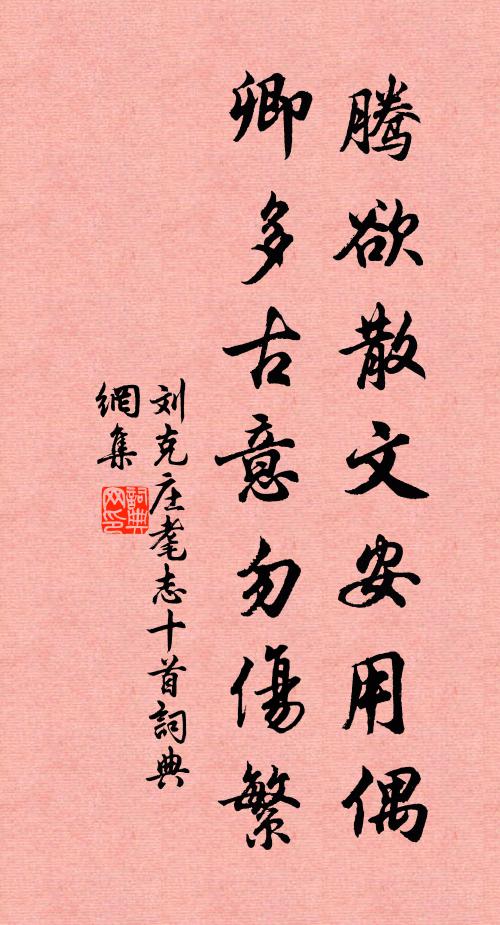 騰欲散文安用偶
卿多古意勿傷繁
刘克庄耄志十首詞典
網集
詞典
网印